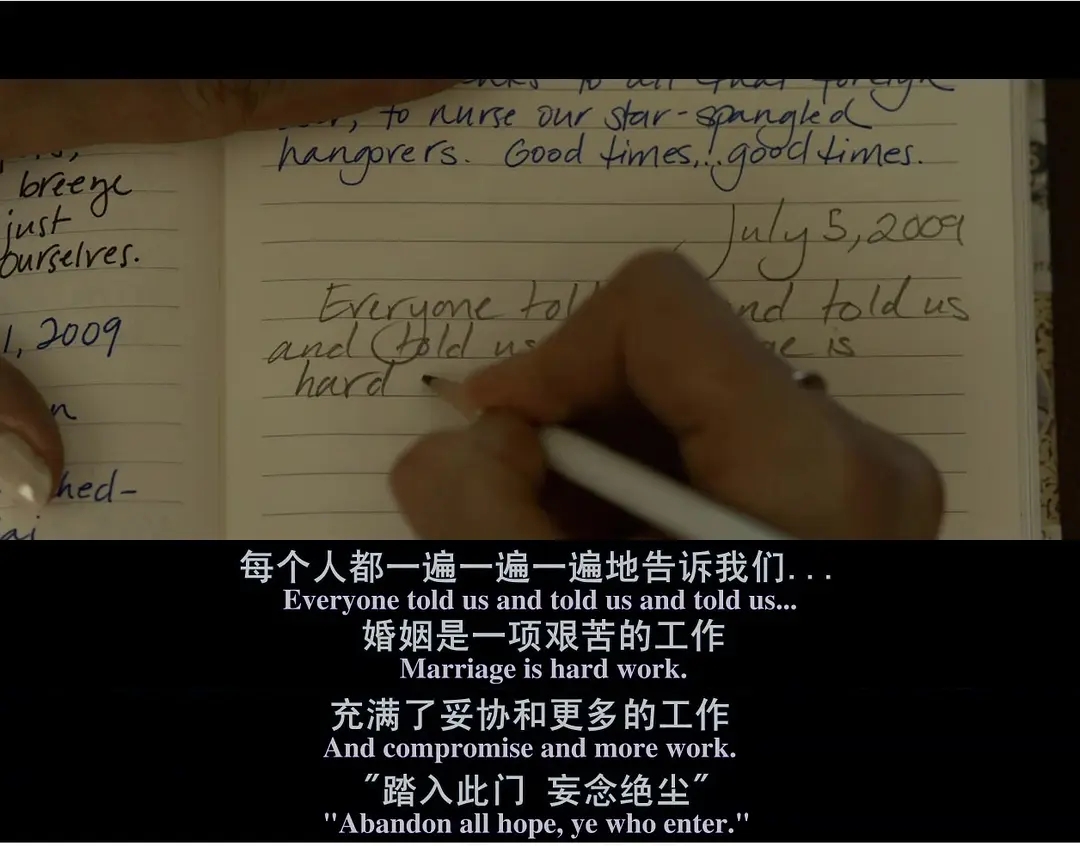 breeze
just
ourselves.
1, 2009
hed-
to all that foreign
to nurse our star-spangled
hangovers. Good times,.. good times.
July 5, 2009
Everyone and told us
and told us is
hard
每个人都一遍一遍一遍地告诉我们...
Everyone told us and told us and told us...
婚姻是一项艰苦的工作
Marriage is hard work.
充满了妥协和更多的工作
And compromise and more work.
"踏入此门 妄念绝尘"
"Abandon all hope, ye who enter."